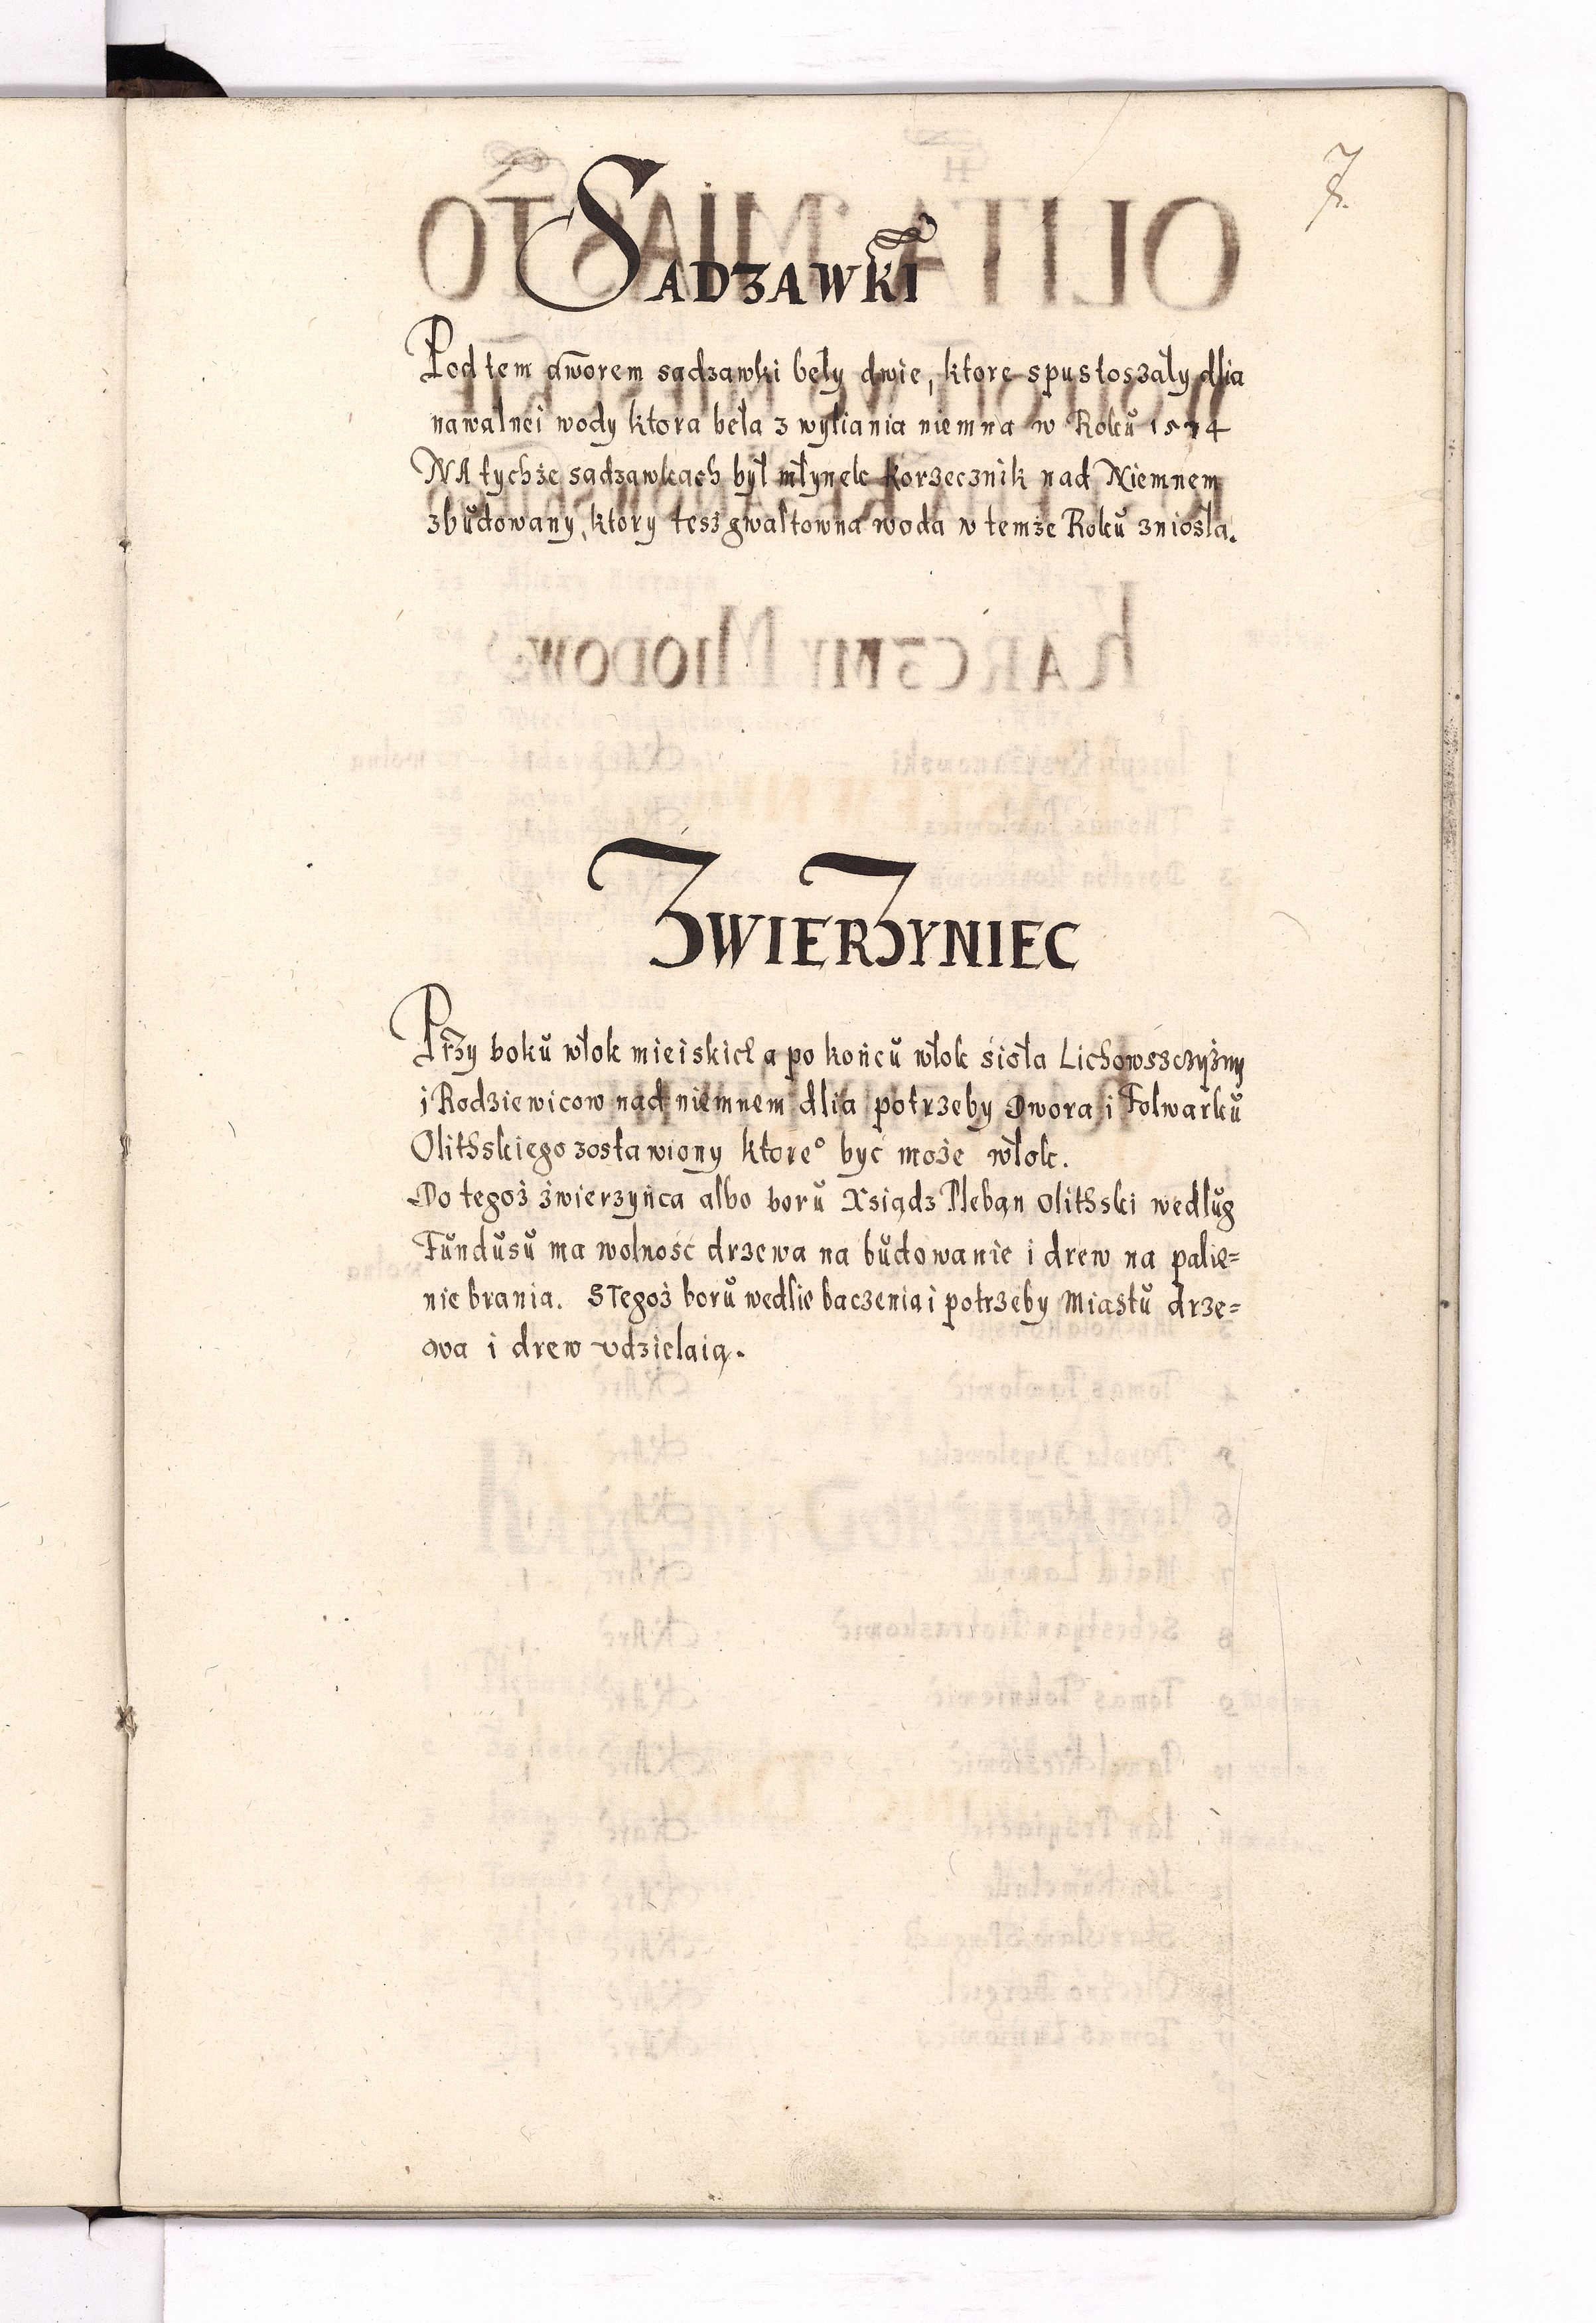 7.
SADZAWKI
Pod tem dworem sadzawki beły dwie, ktore spustoszały dlia
nawalnei wody ktora beła z wyliania niemna w Roku 1574
NA tychże sadzawkach był młynek Korzecznik nad Niemnem
zbudowany, ktory tesz gwałtowna woda w temże Roku zniosła.
ZWIERZYNIEC
Przy boku włok mieiskich a po końcu włok sioła Lichowszczyzny
i Rodziewicow nad niemnem dlia potrzeby Dwora i Folwarku
Olithskiego zostawiony ktore° być może włok.
Do tegoż zwierzyńca albo boru Xsiądz Pleban Olithski według
Fundusu ma wolność drzewa na budowanie i drew na palie=
nie brania. STegoż boru wedlie baczenia i potrzeby Miastu drze=
wa i drew udzielaią.